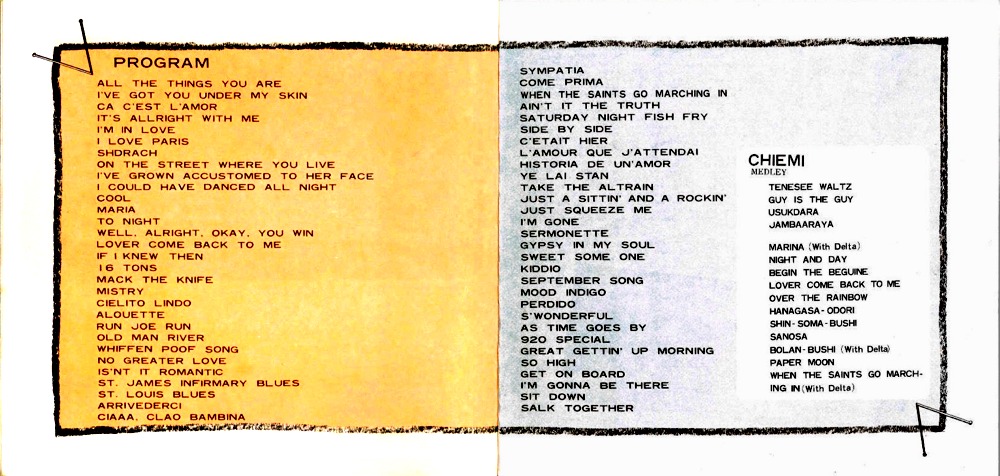 PROGRAM
ALL THE THINGS YOU ARE
I'VE GOT YOU UNDER MY SKIN
CA C'EST L'AMOR
IT'S ALLRIGHT WITH ME
I'M IN LOVE
I LOVE PARIS
SHDRACH
ON THE STREET WHERE YOU LIVE
I'VE GROWN ACCUSTOMED TO HER FACE
I COULD HAVE DANCED ALL NIGHT
COOL
MARIA
TO NIGHT
WELL, ALRIGHT, OKAY, YOU WIN
LOVER COME BACK TO ME
IF I KNEW THEN
16 TONS
MACK THE KNIFE
MISTRY
CIELITO LINDO
ALOUETTE
RUN JOE RUN
OLD MAN RIVER
WHIFFEN POOF SONG
NO GREATER LOVE
IS'NT IT ROMANTIC
ST. JAMES INFIRMARY BLUES
ST. LOUIS BLUES
ARRIVEDERCI
CIAAA, CLAO BAMBINA
SYMPATIA
COME PRIMA
WHEN THE SAINTS GO MARCHING IN
AIN'T IT THE TRUTH
SATURDAY NIGHT FISH FRY
SIDE BY SIDE
C'ETAIT HIER
L'AMOUR QUE J'ATTENDAI
HISTORIA DE UN'AMOR
YE LAI STAN
TAKE THE ALTRAIN
JUST A SITTIN' AND A ROCKIN'
JUST SQUEEZE ME
I'M GONE
SERMONETTE
GYPSY IN MY SOUL
SWEET SOME ONE
KIDDIO
SEPTEMBER SONG
MOOD INDIGO
PERDIDO
S'WONDERFUL
AS TIME GOES BY
920 SPECIAL
GREAT GETTIN' UP MORNING
SO HIGH
GET ON BOARD
I'M GONNA BE THERE
SIT DOWN
SALK TOGETHER
CHIEMI
MEDLEY
TENESEE WALTZ
GUY IS THE GUY
USUKDARA
JAMBAARAYA
MARINA (With Delta)
NIGHT AND DAY
BEGIN THE BEGUINE
LOVER COME BACK TO ME
OVER THE RAINBOW
HANAGASA-ODORI
SHIN-SOMA-BUSHI
SANOSA
BOLAN-BUSHI (With Delta)
PAPER MOON
WHEN THE SAINTS GO MARCH-
ING IN (With Delta)